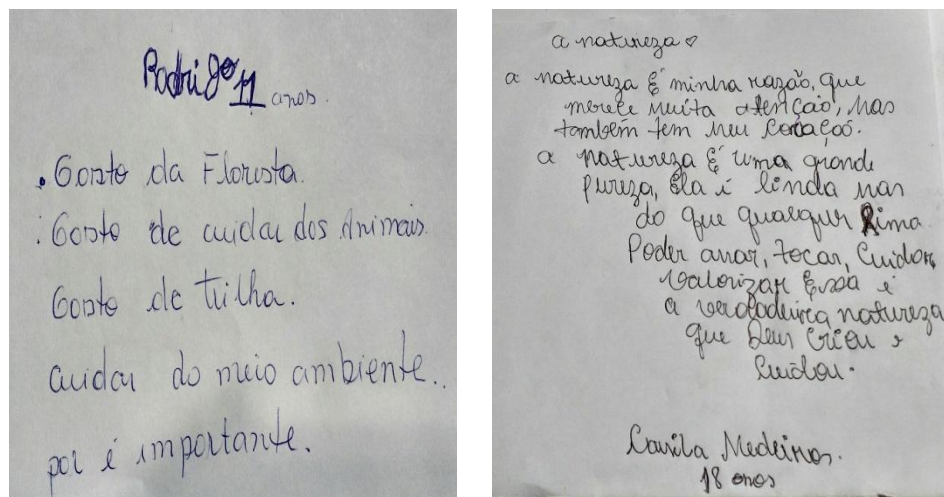 Rodrigo 11 anos.
. Gosto da Floresta.
. Gosto de cuidar dos Animais.
Gosto de trilha.
cuidar do meio ambiente..
por é importante.
a natureza ♡
a natureza é minha razão, que
merece muita atenção, mas
também tem meu coração.
a natureza é uma grande
pureza, Ela é linda mas
do que qualquer Rima.
Poder amar, tocar, Cuidar,
Valorizar Essa é
a verdadeira natureza
que Deus Criou e
Cuidou.
Camila Medeiros.
18 anos